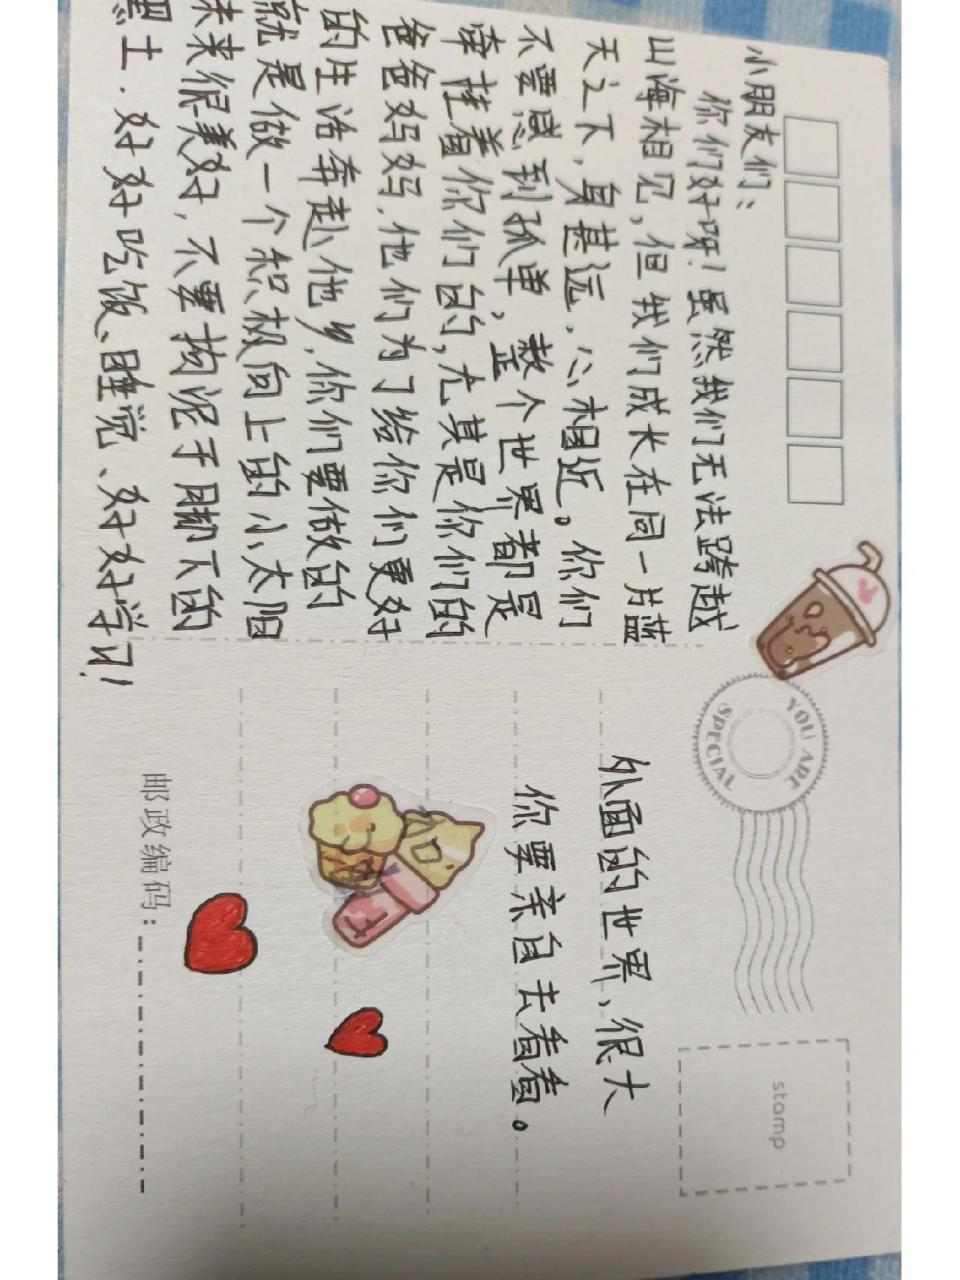 小朋友们：
你们好呀！虽然我们无法跨越
山海相见，但我们成长在同一片蓝
天之下，身甚远，心相近。你们
不要感到孤单，整个世界都是
牵挂着你们的，尤其是你们的
爸爸妈妈，他们为了给你们更好
的生活奔赴他乡，你们要做的
就是做一个积极向上的小太阳
未来很美好，不要拘泥于脚下的
黑土．好好吃饭、睡觉、好好学习！
YOU ARE
SPECIAL
stamp
外面的世界、很大
你要亲自去看看。
邮政编码：